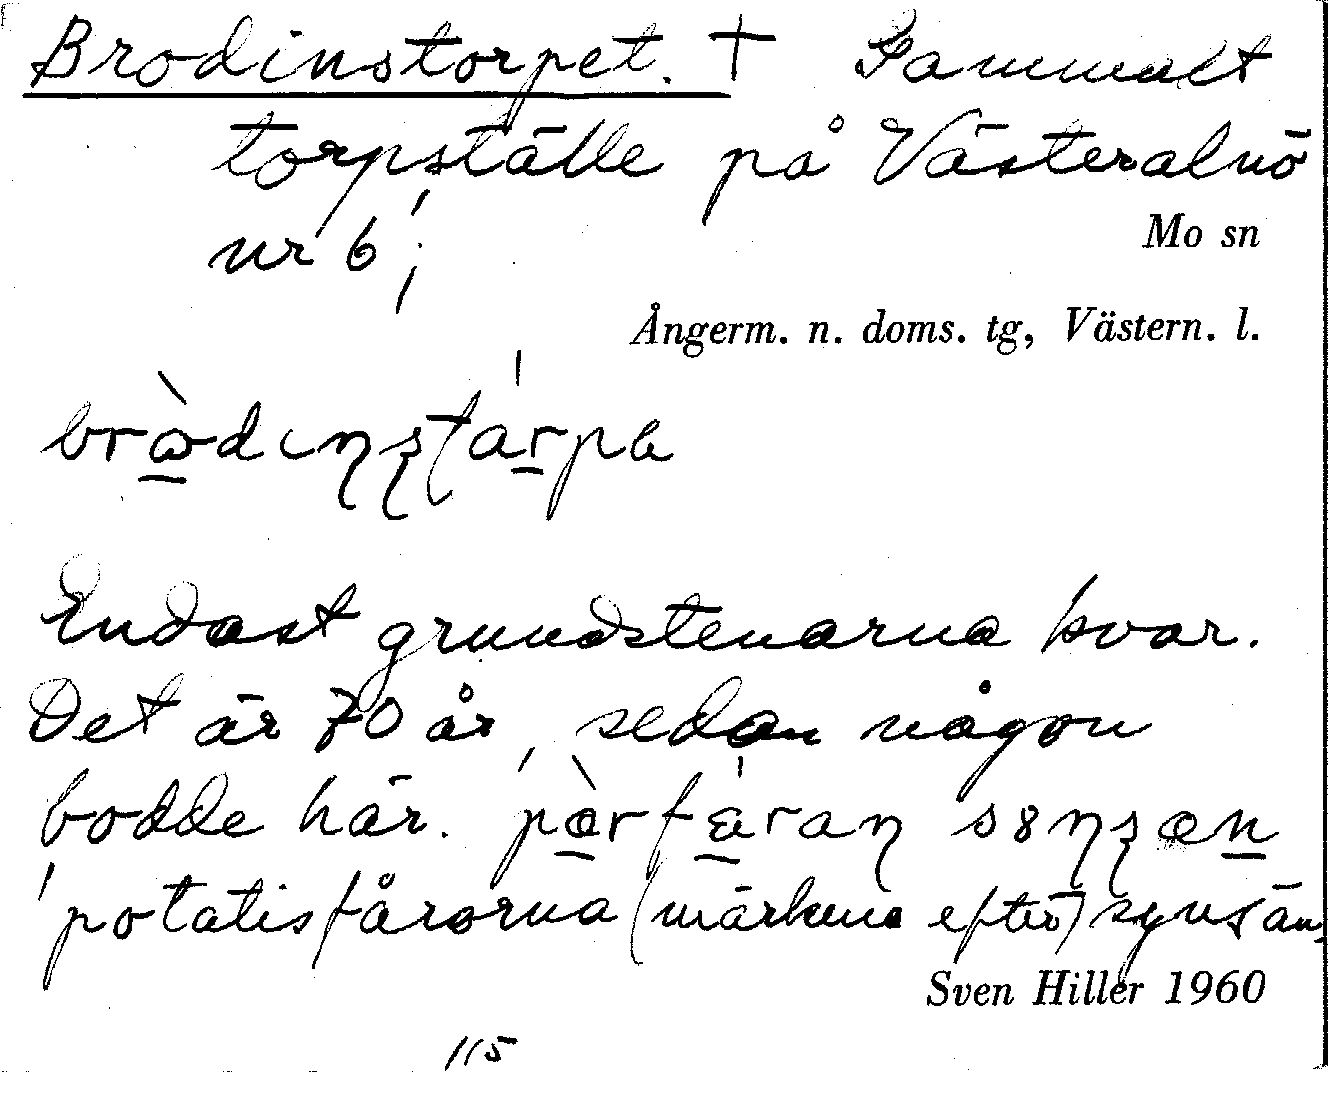 Brodinstorpet. † Gammalt
torpställe på Västeralnö
nr 6;
Mo sn
Ångerm. n. doms. tg, Västern. l.
Endast grundstenarna kvar.
Det är 70 år, sedan någon
bodde här.
'potatisfårorna (märkena efter) syns än,
Sven Hiller 1960
115